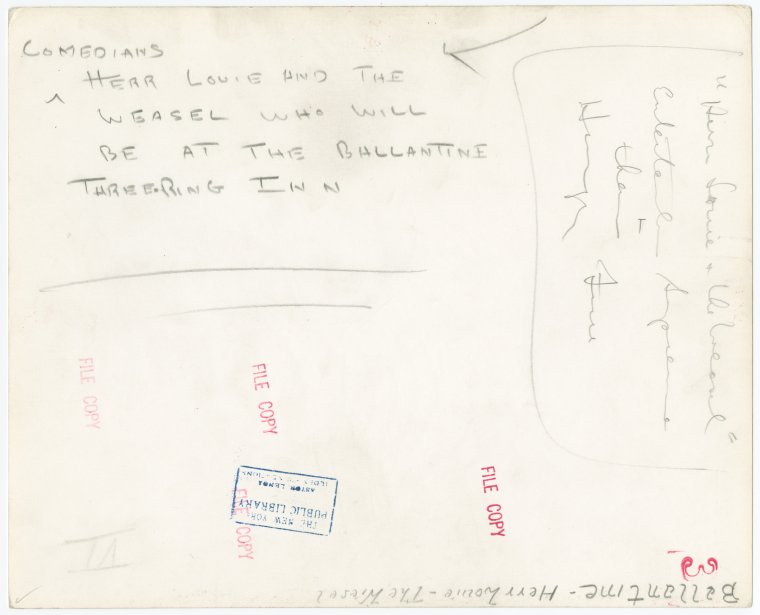 COMEDIANS
^ HERR LOUIE AND THE
WEASEL WHO WILL
BE AT THE BALLANTINE
THREE-RING INN
"Herr Louie + the Weasel"
FILE COPY
FILE COPY
FILE COPY
FILE COPY
THE NEW YORK
PUBLIC LIBRARY
ASTOR LENOX
3
Ballantine - Herr Louie - The Wiesel
VI